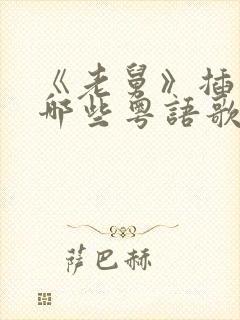 《老舅》插
哪些粵語歌
萨巴赫